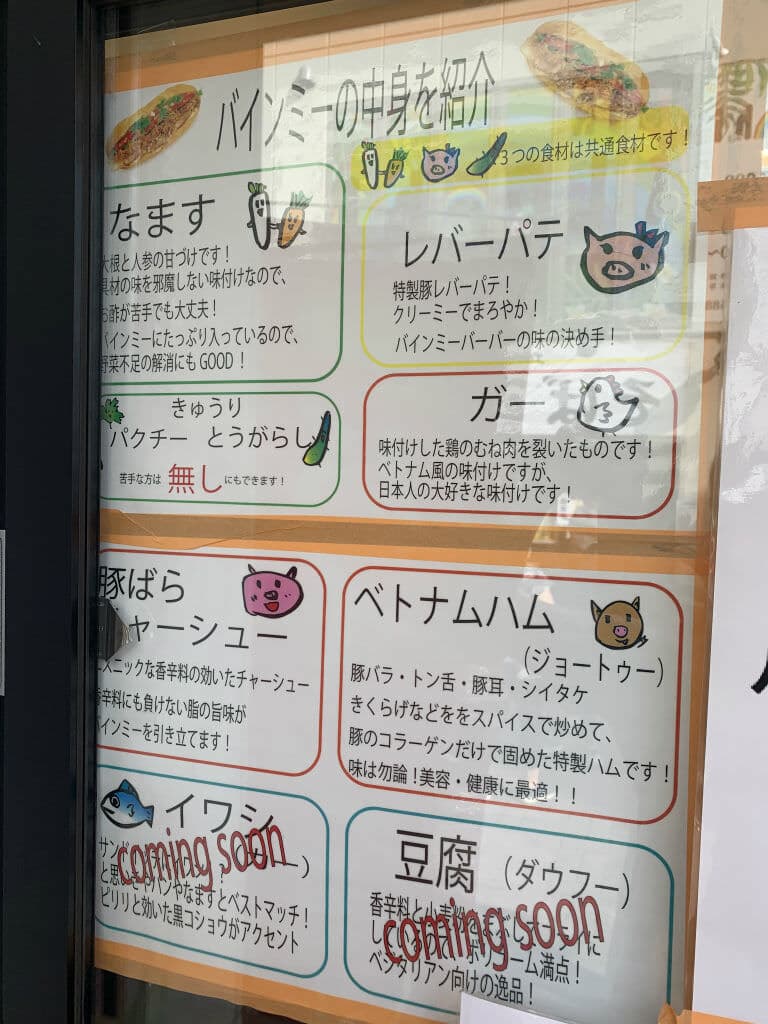 バインミーの中身を紹介
３つの食材は共通食材です！
なます
大根と人参の甘づけです！
具材の味を邪魔しない味付けなので、
お酢が苦手でも大丈夫！
バインミーにたっぷり入っているので、
野菜不足の解消にも GOOD！
レバーパテ
特製豚レバーパテ！
クリーミーでまろやか！
バインミーバーバーの味の決め手！
きゅうり
パクチー とうがらし
苦手な方は 無し にもできます！
ガー
味付けした鶏のむね肉を裂いたものです！
ベトナム風の味付けですが、
日本人の大好きな味付けです！
豚ばら
チャーシュー
エスニックな香辛料の効いたチャーシュー
香辛料にも負けない脂の旨味が
バインミーを引き立てます！
ベトナムハム
（ジョートゥー）
豚バラ・トン舌・豚耳・シイタケ
きくらげなどををスパイスで炒めて、
豚のコラーゲンだけで固めた特製ハムです！
味は勿論！美容・健康に最適！！
イワシ
coming soon
と思いきやパンやなますとベストマッチ！
ピリリと効いた黒コショウがアクセント
豆腐（ダウフー）
香辛料と小麦粉
coming soon
ボリューム満点！
ベジタリアン向けの逸品！